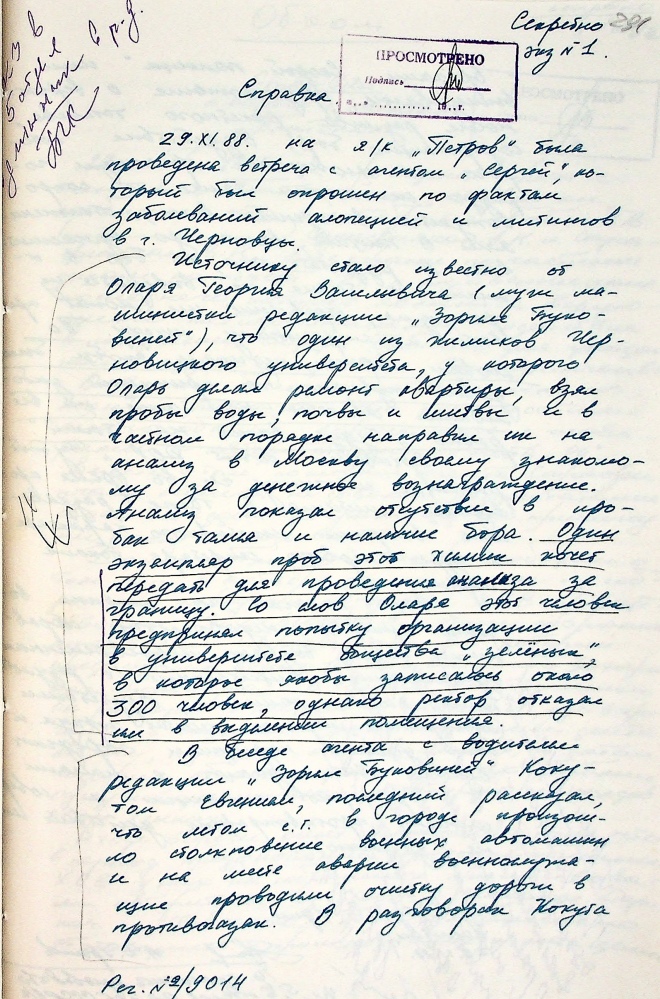 Секретно 291
экз № 1.
ПРОСМОТРЕНО
Подпись
19 г.
в
5 отдел
в р.д.
Справка
29.XI.88. на я/к „Петров" была
проведена встреча с агентом „Сергей", ко-
торый был опрошен по фактам
заболеваний алопецией и митингов
в г. Черновцы.
Источнику стало известно от
Оларя Георгия Васильевича (муж ма-
шинистки редакции „Зориле Буко-
виней"), что один из химиков Чер-
новицкого университета, у которого
Оларь делал ремонт квартиры, взял
пробы воды, почвы и листвы и в
частном порядке направил их на
анализ в Москву своему знакомо-
му за денежное вознаграждение.
Анализ показал отсутствие в про-
бах талия и наличие бора. Один
экземпляр проб этот химик хочет
передать для проведения анализа за
границу. Со слов Оларя этот человек
предпринял попытку организации
в университете общества „зелёных",
в которое якобы записалось около
300 человек, однако ректор отказал
им в выделении помещения.
В беседе агента с водителем
редакции „Зориле Буковиней" Коку-
том Евгением, последний рассказал,
что летом с.г. в городе произош-
ло столкновение военных автомашин
и на месте аварии военнослужа-
щие проводили очистку дороги в
противогазах. В разговорах Кокута
Рег. №2/9014